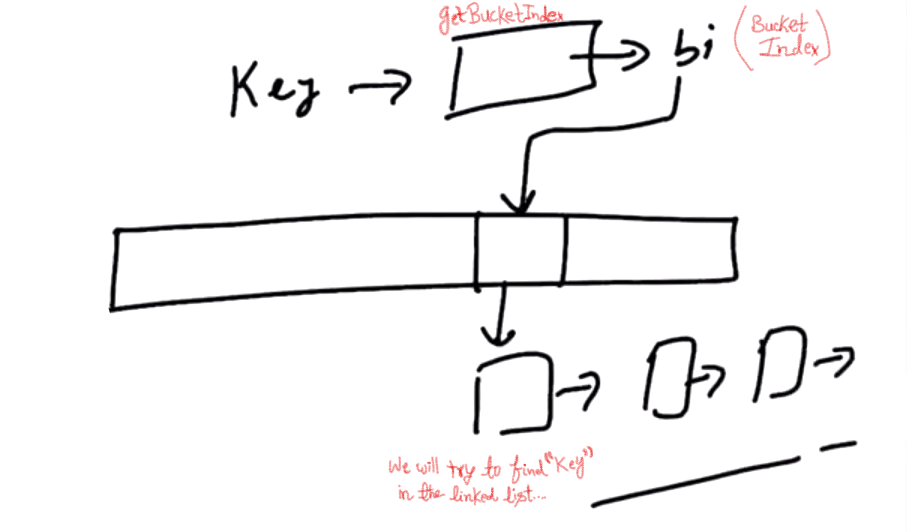 getBucketIndex
Key
bi
(Bucket
Index)
We will try to find "Key"
in the linked list...